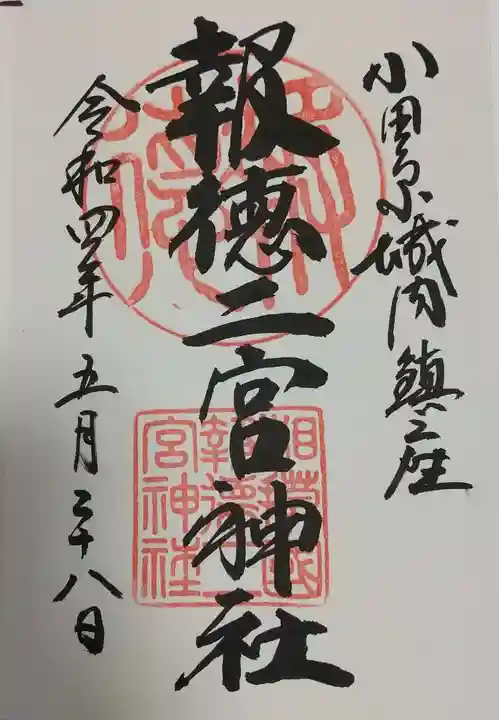 小田原城内鎮座
報徳二宮神社
令和四年五月二十八日
相模國
報徳二
宮神社